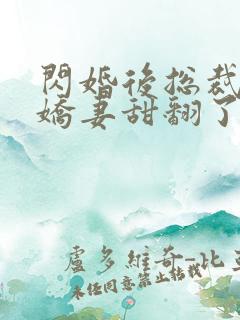 閃婚後總裁
嬌妻甜翻了
盧多維奇-比
未任同意禁止轉載